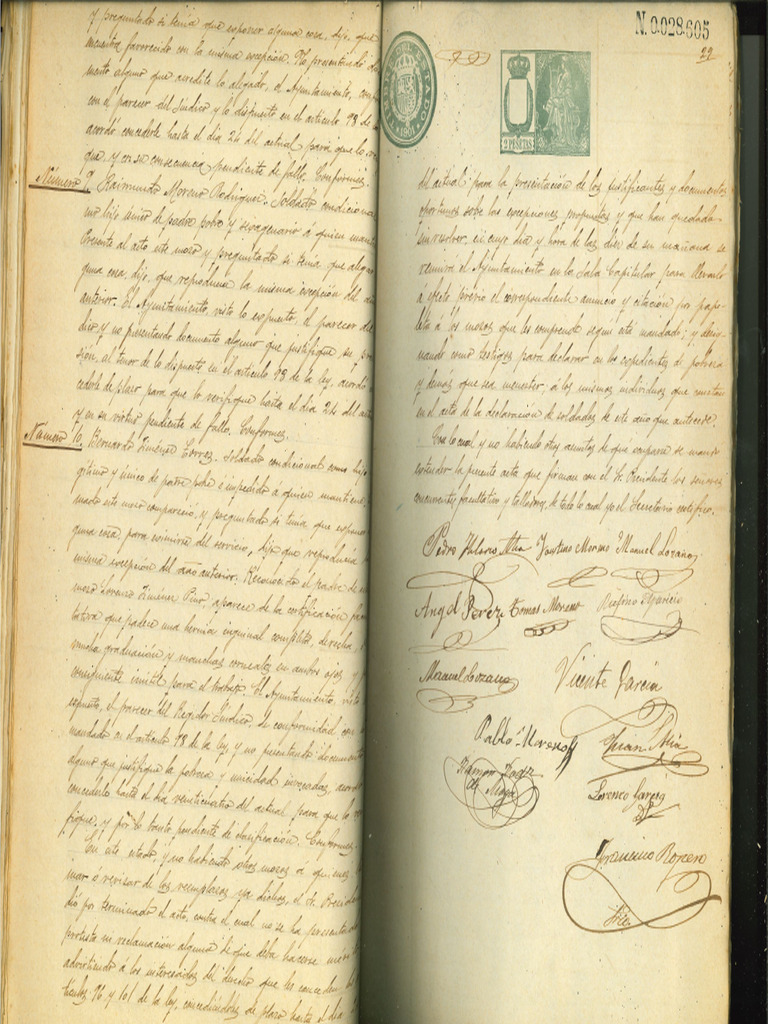 y preguntado si tenia que esponer alguna cosa, dijo, que
encuentra favorecido con la misma excepción. No presentando
mento alguno que acredite lo alegado, el Ayuntamiento, con
con el parecer del Sindico y lo dispuesto en el articulo 98 de
acordó concederle hasta el dia 24 del actual para que lo
que, y en su consecuencia pendiente de fallo. Conformes.
Número 9. Raimundo Moreno Rodriguez. Soldado condicional
mo hijo único de padre pobre y sexagenario á quien man
Presente al acto este mozo y preguntado si tenia que alegar
guna cosa, dijo, que reproducia la misma excepción del
anterior. El Ayuntamiento, visto lo expuesto, el parecer del
dico y no presentando documento alguno que justifique su
sión, al tenor de lo dispuesto en el articulo 98 de la ley, acordó
cederle de plazo para que lo verifique hasta el dia 24 del
y en su virtud pendiente de fallo. Conformes.
Número 10. Bernardo Jiménez Torres. Soldado condicional como hijo
gitimo y único de padre pobre é impedido á quien mantiene
mado este mozo compareció, y preguntado si tenia que esponer
guna cosa, para eximirse del servicio, dijo que reproducia
misma excepción del año anterior. Reconocido el padre de
mozo Lorenzo Jiménez Pino, aparece de la certificación
tativa que padece una hernia inguinal completa, derecha,
mucha graduación y manchas corneales en ambos ojos y
consiguiente inutil para el trabajo. El Ayuntamiento, visto
espuesto, el parecer del Regidor Sindico, de conformidad con
mandado en el articulo 98 de la ley y no presentando documento
alguno que justifique la pobreza y unicidad invocadas, acordó
concederle hasta el dia veinticuatro del actual para que lo
fique, y por lo tanto pendiente de clasificación. Conformes.
En este estado y no habiendo otros mozos á que
inar ó revisar de los reemplazos ya dichos, el Sr. Presid
dió por terminado el acto, contra el cual no se ha presentado
protesta ni reclamación alguna de que deba hacerse
advirtiendo á los interesados del derecho que les conceden
ticulos 96 y 101 de la ley, concediendoles de plazo hasta el dia
N. 0.028.605
22
TIMBRE DEL ESTADO
1901
2 PESETAS
del actual para la presentación de los justificantes y documentos
oportunos sobre las excepciones propuestas y que han quedado
sin resolver, en cuyo dia y hora de las diez de su mañana se
reunirá el Ayuntamiento en la Sala Capitular para llevarlo
á efecto previo el correspondiente anuncio y citación por pape-
leta á los mozos que les comprende segun está mandado; y desig-
nando como testigos para declarar en los espedientes de pobreza
y demás que sea menester, á los mismos individuos que constan
en el acta de la declaración de soldados de este año que antecede.
Con lo cual y no habiendo otros asuntos de qué ocuparse se mandó
estender la presente acta que firman con el Sr. Presidente los señores
concurrentes, facultativo y tallador, de todo lo cual yo el Secretario certifico.
Pedro Faustino Moreno Manuel Lozano
Angel Perez Tomas Moreno Rufino Aparicio
Manuel Lozano Vicente Garcia
Pablo Moreno Juan
Ramon
de Moya Lorenzo Garcia
Francisco Ropero